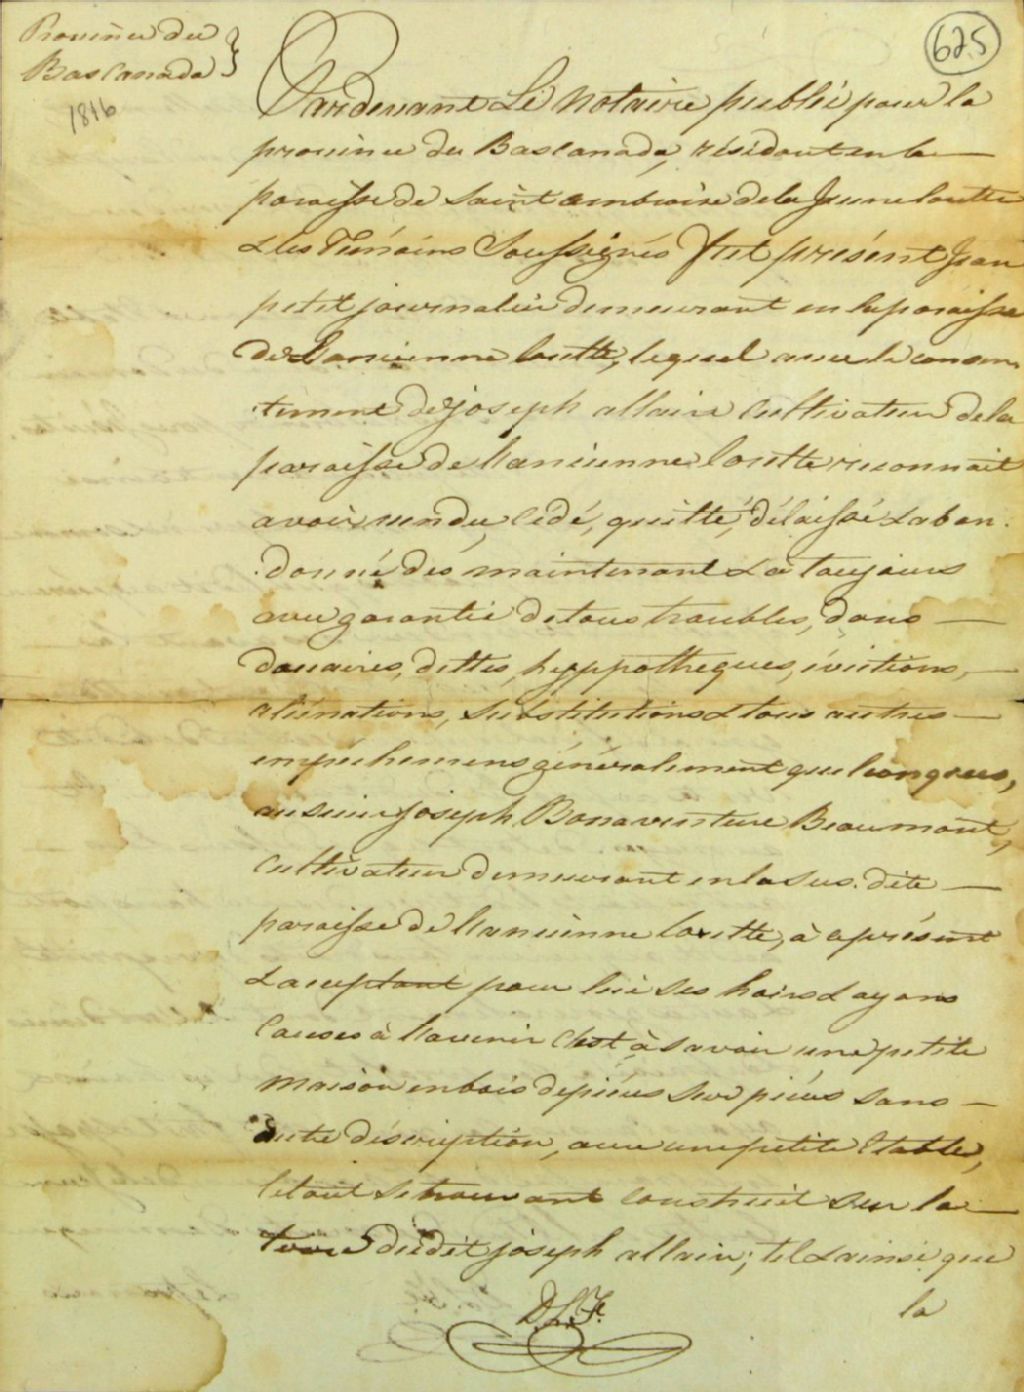 Province du
Bas Canada
1816
625
Pardevant Le Notaire public pour la
province du Bas Canada, résidant en la
paroisse de Saint Ambroise de la Jeune Lorette
& les Témoins Soussignés Fut présent Jean
petit journalier demeurant en la paroisse
de L'ancienne Lorette, lequel avec le consen
tement de Joseph allaire Cultivateur de la
paroisse de l'ancienne Lorette reconnait
avoir vendu, Cédé, quitté, délaissé & aban.
donné dès maintenant & à toujours
avec garantie de tous troubles, dons
douaires, dettes, hyppotheques, évictions,
aliénations, substitutions & tous autres
empêchemens généralement quelconques,
au sieur Joseph Bonaventure Beaumont,
Cultivateur demeurant en la sus. dite
paroisse de l'ancienne Lorette, à a présent
& acceptant pour lui ses hoirs & ayans
Causes à l'avenir C'est à savoir une petite
maison en bois de pièces sur pièces sans
autre déscription, avec une petite Etable,
le tout se trouvant construit sur la
terre du dit Joseph allaire; tel & ainsi que
la
D.L.F.